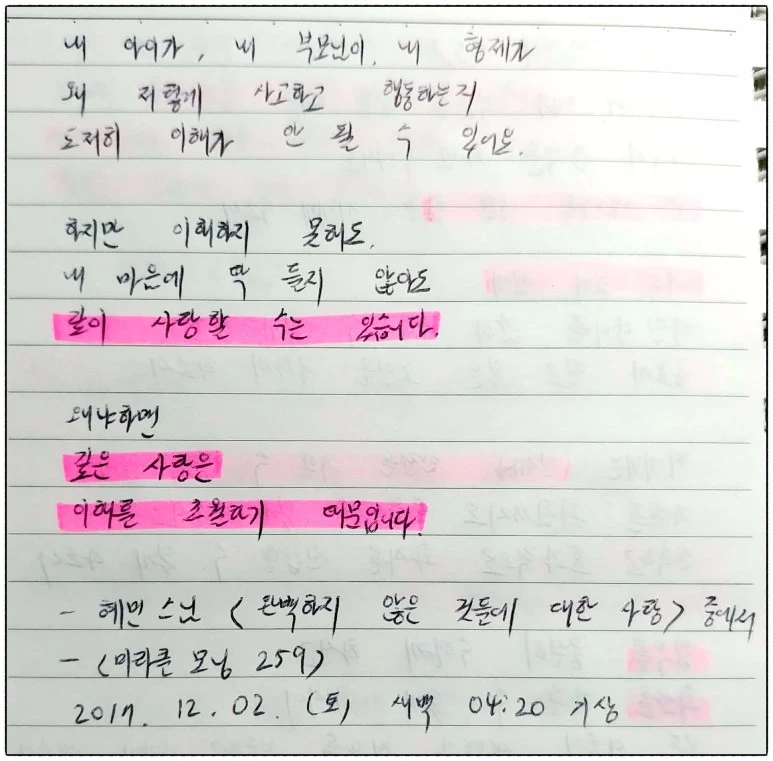 내 아이가, 내 부모님이, 내 형제가
왜 저렇게 사고하고 행동하는지
도저히 이해가 안 될 수 있어요.
하지만 이해하지 못해도,
내 마음에 딱 들지 않아도
깊이 사랑할 수는 있습니다.
왜냐하면
깊은 사랑은
이해를 초월하기 때문입니다.
- 혜민 스님 <완벽하지 않은 것들에 대한 사랑> 중에서
- <미라클 모닝 259>
2017. 12. 02. (토) 새벽 04:20 기상